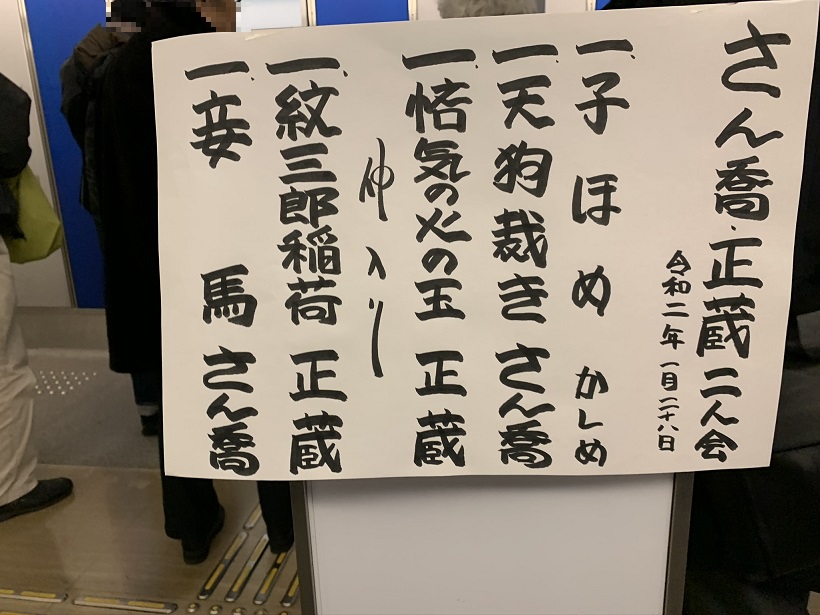 さん喬・正蔵二人会
令和二年 一月二十八日
一、子ほめ かしめ
一、天狗裁き さん喬
一、悋気の火の玉 正蔵
仲入り
一、紋三郎稲荷 正蔵
一、妾馬 さん喬